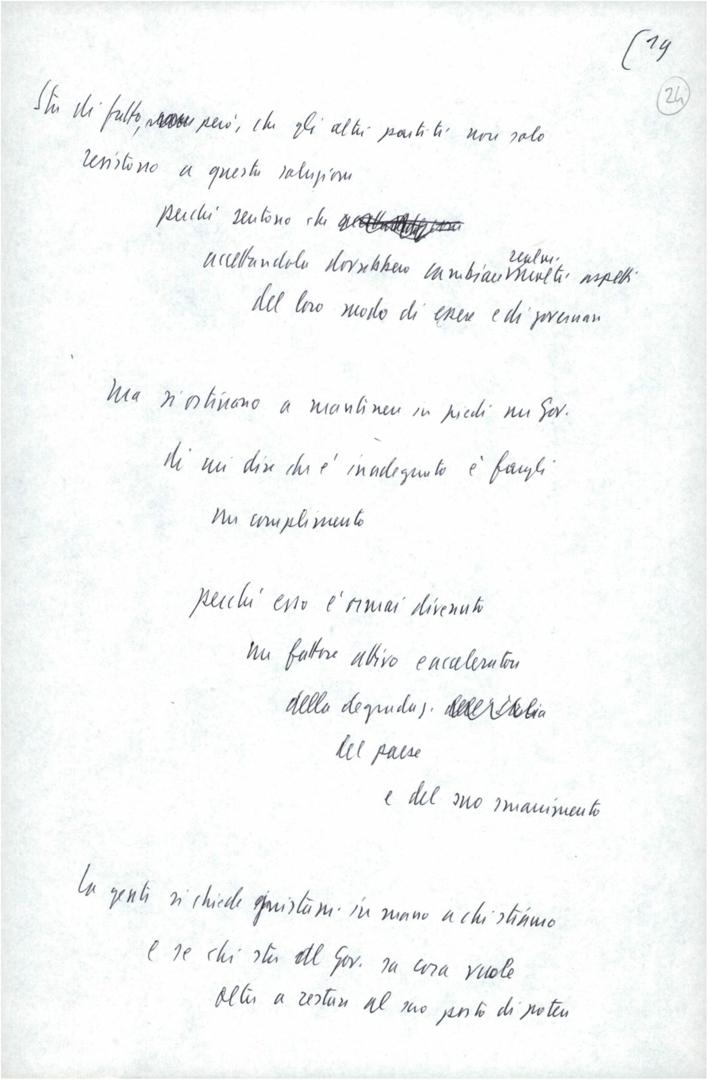 (19
24
Sta di fatto, però, che gli altri partiti non solo
resistono a questa soluzione
perché sentono che
accettandola dovrebbero cambiare realm. molti aspetti
del loro modo di essere e di governare
Ma si ostinano a mantenere in piedi un Gov.
di cui dire che è inadeguato è fargli
un complimento
perché esso è ormai divenuto
un fattore attivo e acceleratore
della degradaz. dell'Italia
del paese
e del suo smarrimento
La gente si chiede giustam. in mano a chi stiamo
e se chi sta al Gov. sa cosa vuole
oltre a restare al suo posto di potere